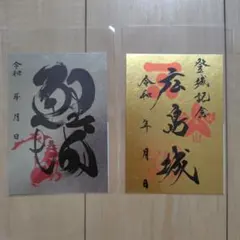 鯉城
令和 年 月 日
登城記念
広島城
令和 年 月 日